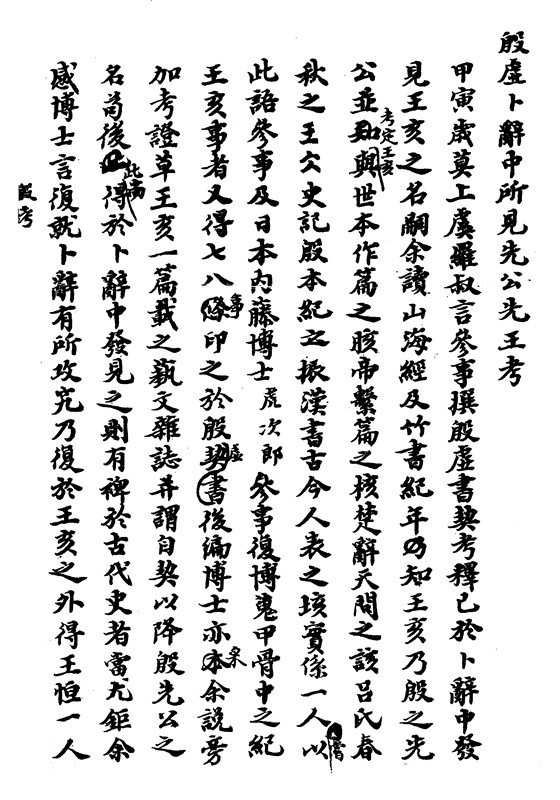 殷虛卜辭中所見先公先王考
甲寅歲莫上虞羅叔言參事撰殷虛書契考釋已於卜辭中發
見王亥之名嗣余讀山海經及竹書紀年乃知王亥乃殷之先
公並與世本作篇之胲帝繫篇之核楚辭天問之該呂氏春
考定王亥
秋之王冰史記殷本紀之振漢書古今人表之垓實係一人以
嘗
此語參事及日本內藤博士虎次郎參事復博蒐甲骨中之紀
王亥事者又得七八條印之於殷書後編博士亦余說旁
事
虛
采
加考證草王亥一篇載之藝文雜誌并謂自契以降殷先公之
名苟後得於卜辭中發見之則有裨於古代史者當尤鉅余
此
感博士言復就卜辭有所攻究乃復於王亥之外得王恒一人
殷考